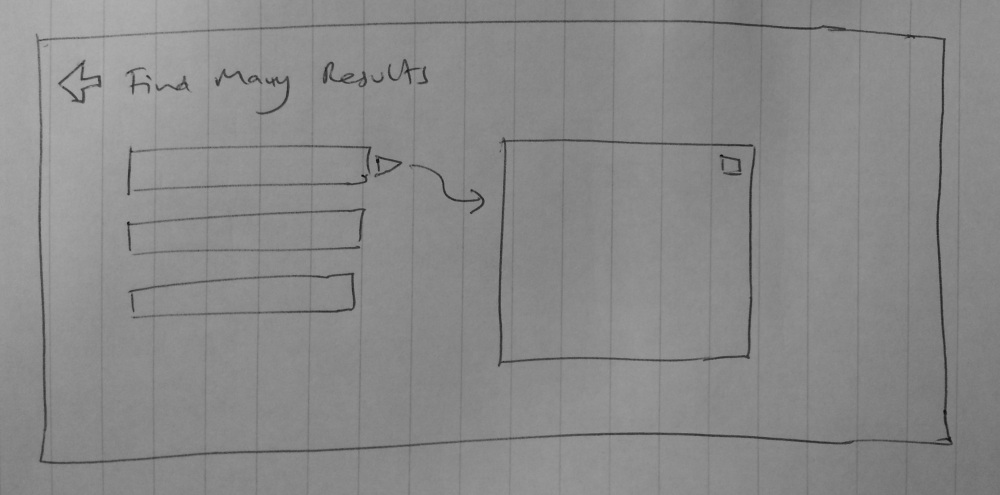 Find Many Results